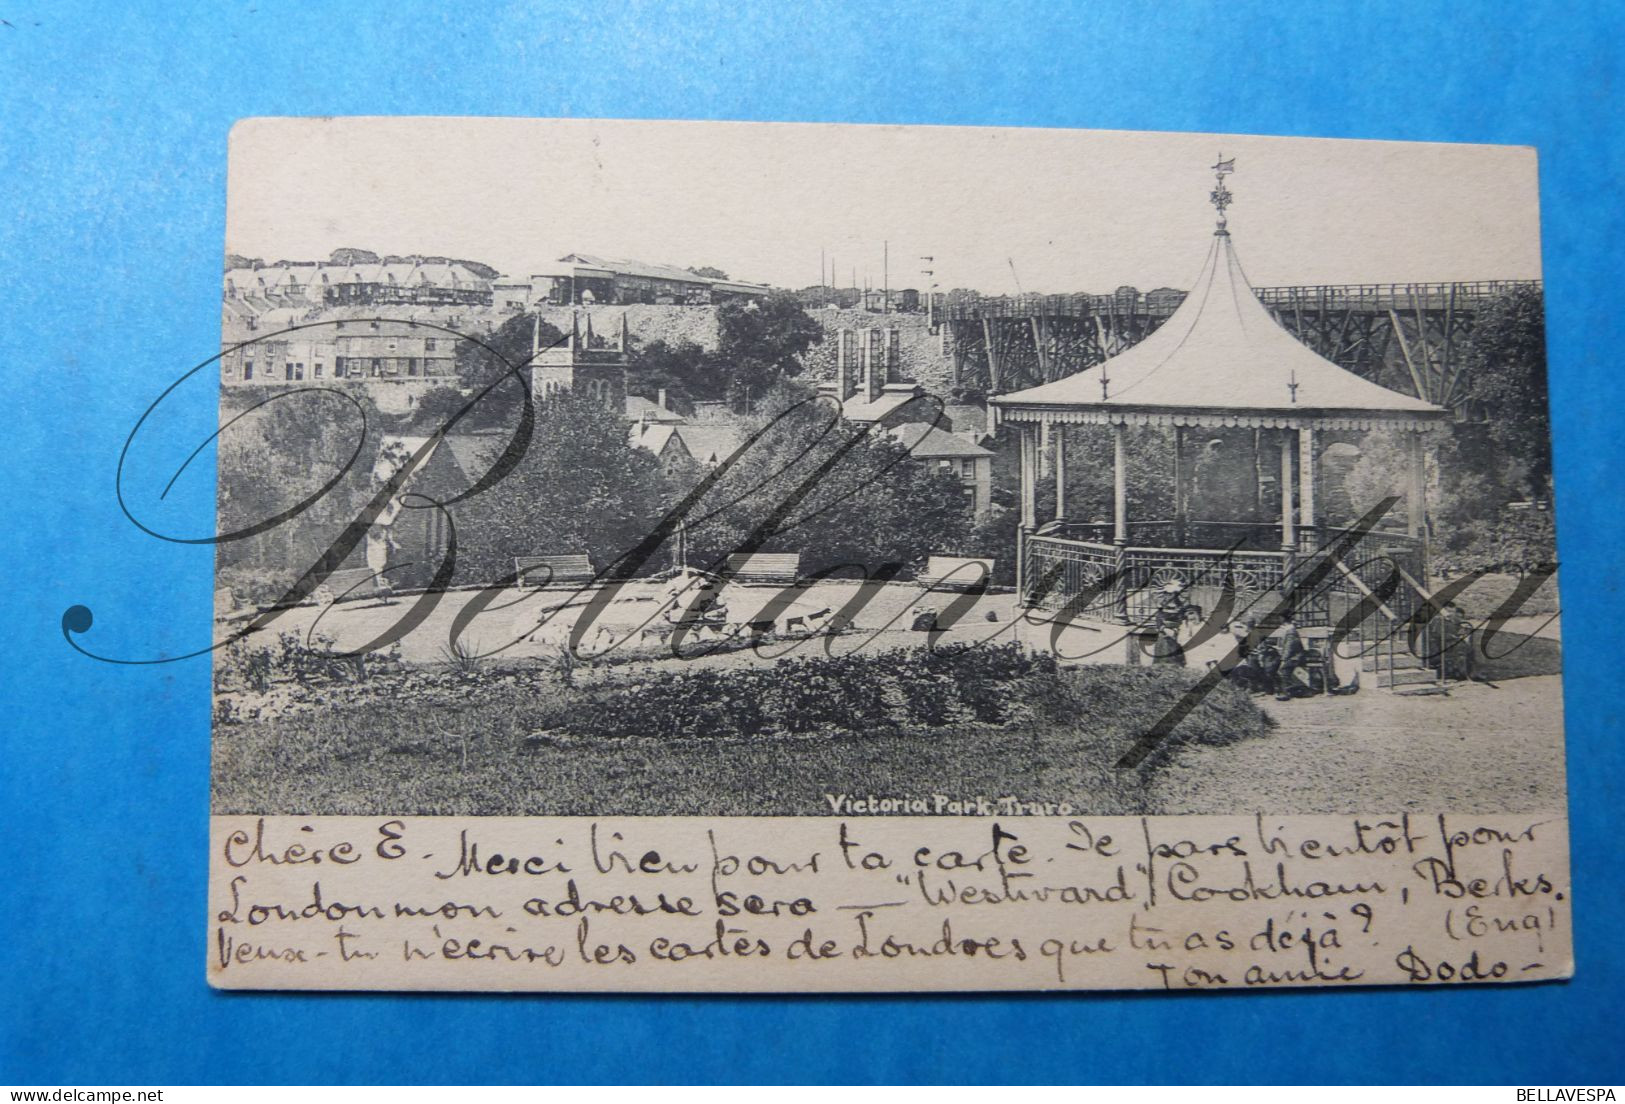 Bellavespa
Victoria Park, Truro
Chère E. Merci bien pour ta carte. Je pars bientôt pour
London mon adresse sera — "Westward", Cookham, Berks.
Veux-tu n'écrire les cartes de Londres que tu as déjà? (Eng)
Ton amie Dodo -
BELLAVESPA